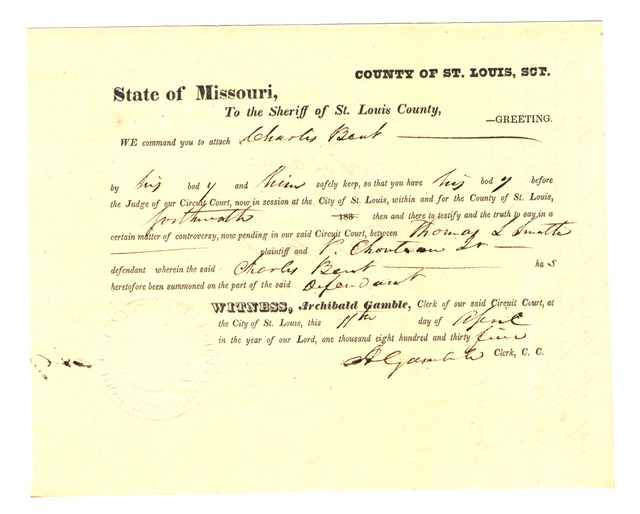 COUNTY OF ST. LOUIS, SCT.
State of Missouri,
To the Sheriff of St. Louis County,
—GREETING.
WE command you to attach Charles Bent
by his body and him safely keep, so that you have his body before
the Judge of our Circuit Court, now in session at the City of St. Louis, within and for the County of St. Louis,
forthwith 183 then and there to testify and the truth to say, in a
certain matter of controversy, now pending in our said Circuit Court, between Thomas L Smith
plaintiff and P. Chouteau Jr
defendant wherein the said Charles Bent has
heretofore been summoned on the part of the said Defendant
WITNESS, Archibald Gamble, Clerk of our said Circuit Court, at
the City of St. Louis, this 11th day of April
in the year of our Lord, one thousand eight hundred and thirty five
A Gamble Clerk, C. C.